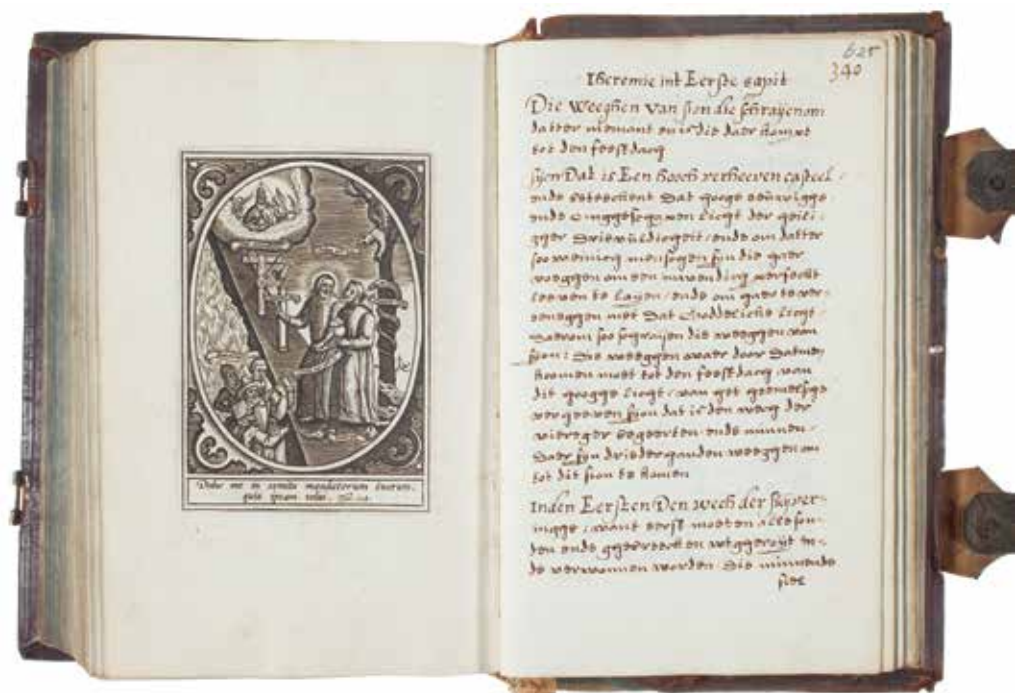 Deduc me in semita mandatorum tuorum,
quia ipsam volui.
625
340
Iheremie int Eerste capit
Die weeghen van sion die schrayen om
datter niemant en is die daer komet
tot den feest dach
sijon Dat is Een hooch verheeven casteel
ende beteeckent Dat hooge
ende licht der heili-
gger Drievuldicgeit ende om datter
soo weinich menschen sijn die haer
om een perfeckt
leeven te layen ende om haer te ver-
eeneggen met Dat Goddeliche licht
Daerom soo schraijen die weeggen van
sijon: Die weeggen waer door Datmen
koomen moet tot den feest dach van
dit hoogge licht van het
sijon dat is den wech der
begeerten ende minnen
Daer sijn drie der handen weeggen om
tot dit sion te komen
Inden Eersten Den wech der suyver-
ingge want eerst moeten alle son-
den ende gebreecken wtggeroijt en-
de verwonnen worden Die minnende
siele